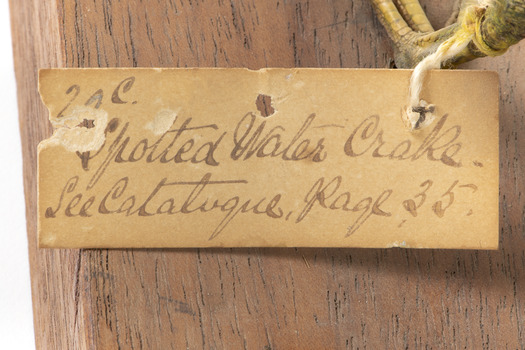 29C.
Spotted Water Crake.
See Catalogue, Page 35.